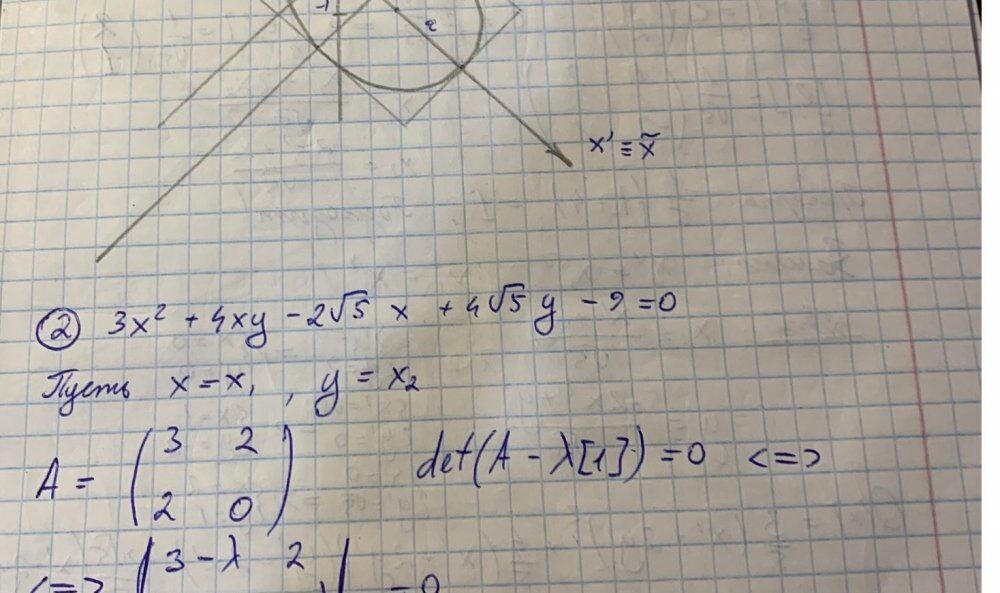 -1
2
x' ≡ x̃
② 3x² + 4xy - 2√5 x + 4√5 y - 9 = 0
Пусть x = x₁, y = x₂
A = (3 2
2 0) det(A - λ[1]) = 0 <=>
<=> |3-λ 2
| = 0